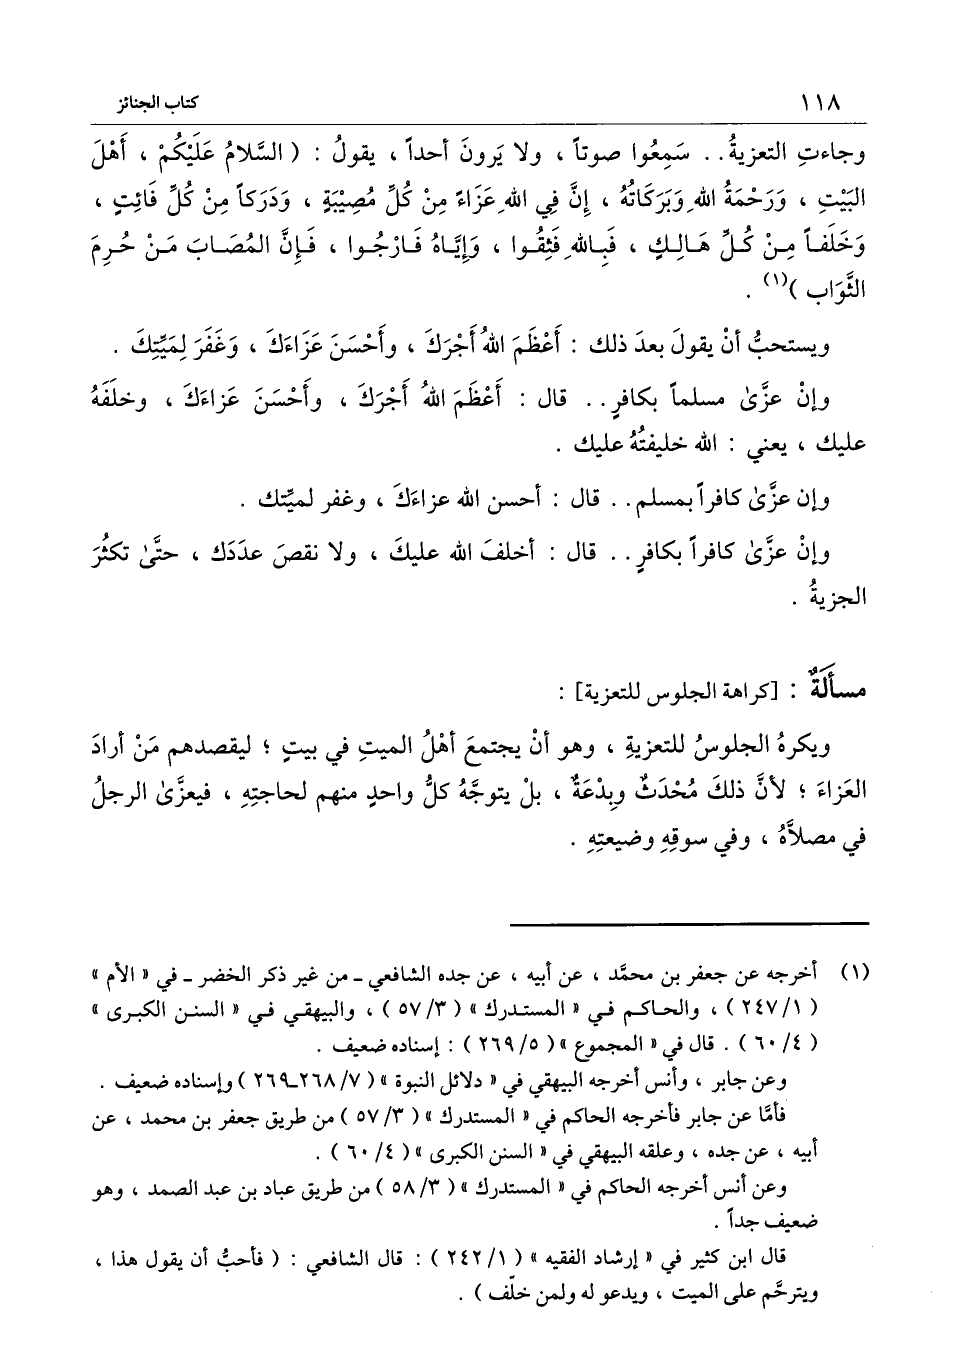 ١١٨ كتاب الجنائز
وجاءتِ التعزيةُ.. سَمِعُوا صوتاً ، ولا يَرونَ أحداً ، يقولُ : ( السَّلامُ عَلَيْكُمْ ، أَهْلَ
البَيْتِ ، وَرَحْمَةُ اللهِ وَبَرَكَاتُهُ ، إِنَّ فِي اللهِ عَزَاءً مِنْ كُلِّ مُصِيْبَةٍ ، وَدَرَكاً مِنْ كُلِّ فَائِتٍ ،
وَخَلَفاً مِنْ كُلِّ هَالِكٍ ، فَبِاللهِ فَثِقُوا ، وَإِيَّاهُ فَارْجُوا ، فَإِنَّ المُصَابَ مَنْ حُرِمَ
الثَّوَاب )(١) .
ويستحبُّ أنْ يقولَ بعدَ ذلك : أَعْظَمَ اللهُ أَجْرَكَ ، وأَحْسَنَ عَزَاءَكَ ، وَغَفَرَ لِمَيِّتِكَ .
وإنْ عزَّىٰ مسلماً بكافرٍ.. قال : أَعْظَمَ اللهُ أَجْرَكَ ، وأَحْسَنَ عَزاءَكَ ، وخلَفَهُ
عليك ، يعني : الله خليفتُهُ عليك .
وإن عزَّىٰ كافراً بمسلم.. قال : أحسن الله عزاءَكَ ، وغفر لميِّتك .
وإنْ عزَّىٰ كافراً بكافرٍ.. قال : أخلفَ الله عليكَ ، ولا نقصَ عدَدَك ، حتَّىٰ تكثُرَ
الجزيةُ .
مسأَلَةٌ : [كراهة الجلوس للتعزية] :
ويكرهُ الجلوسُ للتعزيةِ ، وهو أنْ يجتمعَ أهْلُ الميتِ في بيتٍ ؛ ليقصدهم مَنْ أرادَ
العَزاءَ ؛ لأنَّ ذلكَ مُحْدَثٌ وبِدْعَةٌ ، بلْ يتوجَّهُ كلُّ واحدٍ منهم لحاجتِهِ ، فيعزَّىٰ الرجلُ
في مصلاَّهُ ، وفي سوقِهِ وضيعتِهِ .
(١) أخرجه عن جعفر بن محمَّد ، عن أبيه ، عن جده الشافعي ـ من غير ذكر الخضر ـ في « الأم »
( ١/ ٢٤٧ ) ، والحاكم في « المستدرك » ( ٣/ ٥٧ ) ، والبيهقي في « السنن الكبرى »
( ٤/ ٦٠ ) . قال في « المجموع » ( ٥/ ٢٦٩ ) : إسناده ضعيف .
وعن جابر ، وأنس أخرجه البيهقي في « دلائل النبوة » ( ٧/ ٢٦٨ـ٢٦٩ ) وإسناده ضعيف .
فأمَّا عن جابر فأخرجه الحاكم في « المستدرك » ( ٣/ ٥٧ ) من طريق جعفر بن محمد ، عن
أبيه ، عن جده ، وعلقه البيهقي في « السنن الكبرى » ( ٤/ ٦٠ ) .
وعن أنس أخرجه الحاكم في « المستدرك » ( ٣/ ٥٨ ) من طريق عباد بن عبد الصمد ، وهو
ضعيف جداً .
قال ابن كثير في « إرشاد الفقيه » ( ١/ ٢٤٢ ) : قال الشافعي : ( فأحبُّ أن يقول هذا ،
ويترحَّم على الميت ، ويدعو له ولمن خلَّف ) .